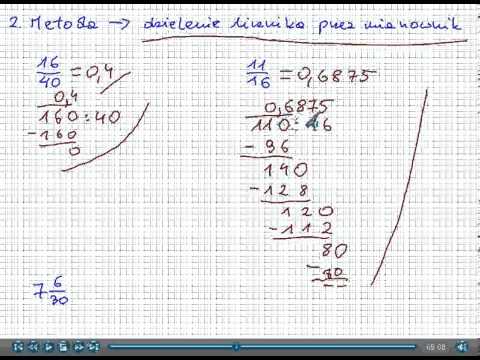 2. Metoda → dzielenie licznika przez mianownik
16/40 = 0,4
0,4
160:40
-160
0
11/16 = 0,6875
0,6875
110:16
-96
140
-128
120
-112
80
-80
--
7 6/30